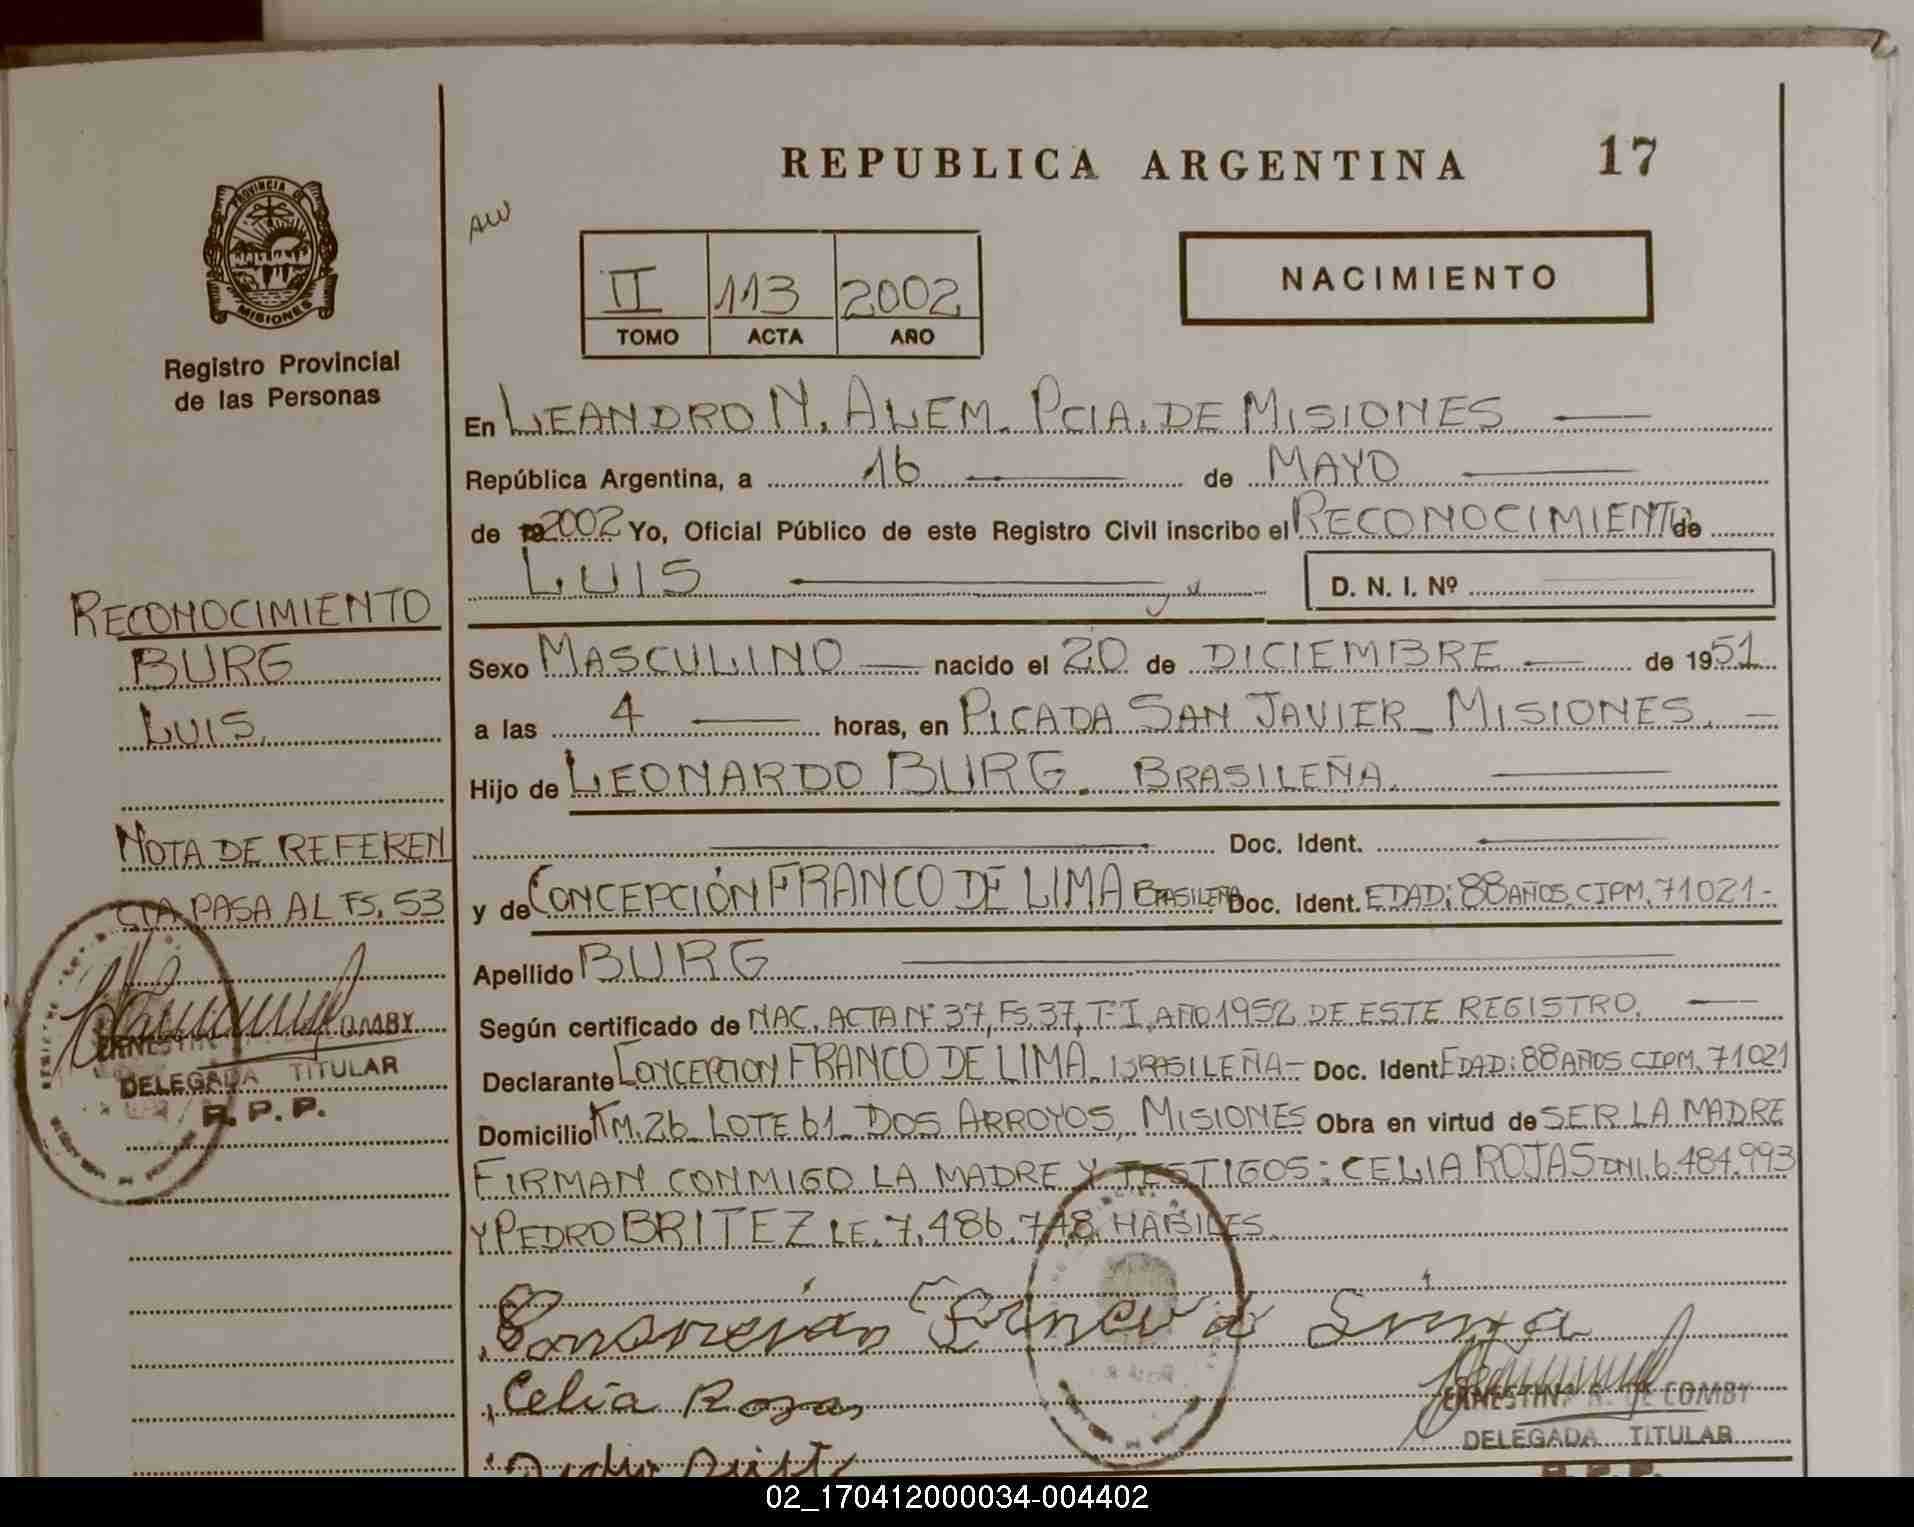 REPUBLICA ARGENTINA
17
AW
PROVINCIA DE
MISIONES
Registro Provincial
de las Personas
II 113 2002
TOMO ACTA AÑO
NACIMIENTO
En LEANDRO N. ALEM. PCIA. DE MISIONES
República Argentina, a 16 de MAYO
de 2002 Yo, Oficial Público de este Registro Civil inscribo el RECONOCIMIENTO de
LUIS
D. N. I. Nº
Sexo MASCULINO nacido el 20 de DICIEMBRE de 1951
a las 4 horas, en PICADA SAN JAVIER MISIONES.
Hijo de LEONARDO BURG. BRASILEÑA.
Doc. Ident.
y de CONCEPCIÓN FRANCO DE LIMA BRASILEÑA Doc. Ident. EDAD: 88 AÑOS. CIPM. 71021-
Apellido BURG
Según certificado de NAC. ACTA Nº 37, FS. 37, Tº I, AÑO 1952 DE ESTE REGISTRO.
Declarante CONCEPCION FRANCO DE LIMA BRASILEÑA- Doc. Ident. EDAD: 88 AÑOS CIPM. 71021
Domicilio KM. 26 LOTE 61 DOS ARROYOS, MISIONES Obra en virtud de SER LA MADRE
FIRMAN CONMIGO LA MADRE Y TESTIGOS: CELIA ROJAS DNI. 6.484.993
Y PEDRO BRITEZ LE. 7.486.748. HABILES.
Celia Rojas
ERNESTINA R. DE COMBY
DELEGADA TITULAR
R.P.P.
RECONOCIMIENTO
BURG
LUIS.
NOTA DE REFEREN
CIA PASA AL FS. 53
ERNESTINA COMBY
DELEGADA TITULAR
R.P.P.
02_170412000034-004402